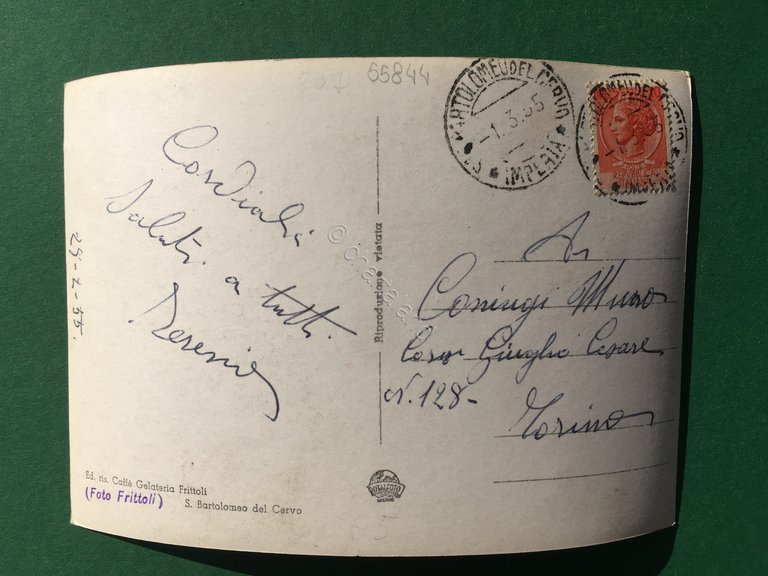 65844
S. BARTOLOMEO DEL CERVO
-1.3.55
* IMPERIA *
Cordiali
Saluti a tutti.
28-2-55.
Riproduzione vietata
Ai
Coniugi Muro
Corso Giuglio Cesare
N. 128-
Torino
Ed. ris. Caffè Gelateria Frittoli
(Foto Frittoli)
S. Bartolomeo del Cervo